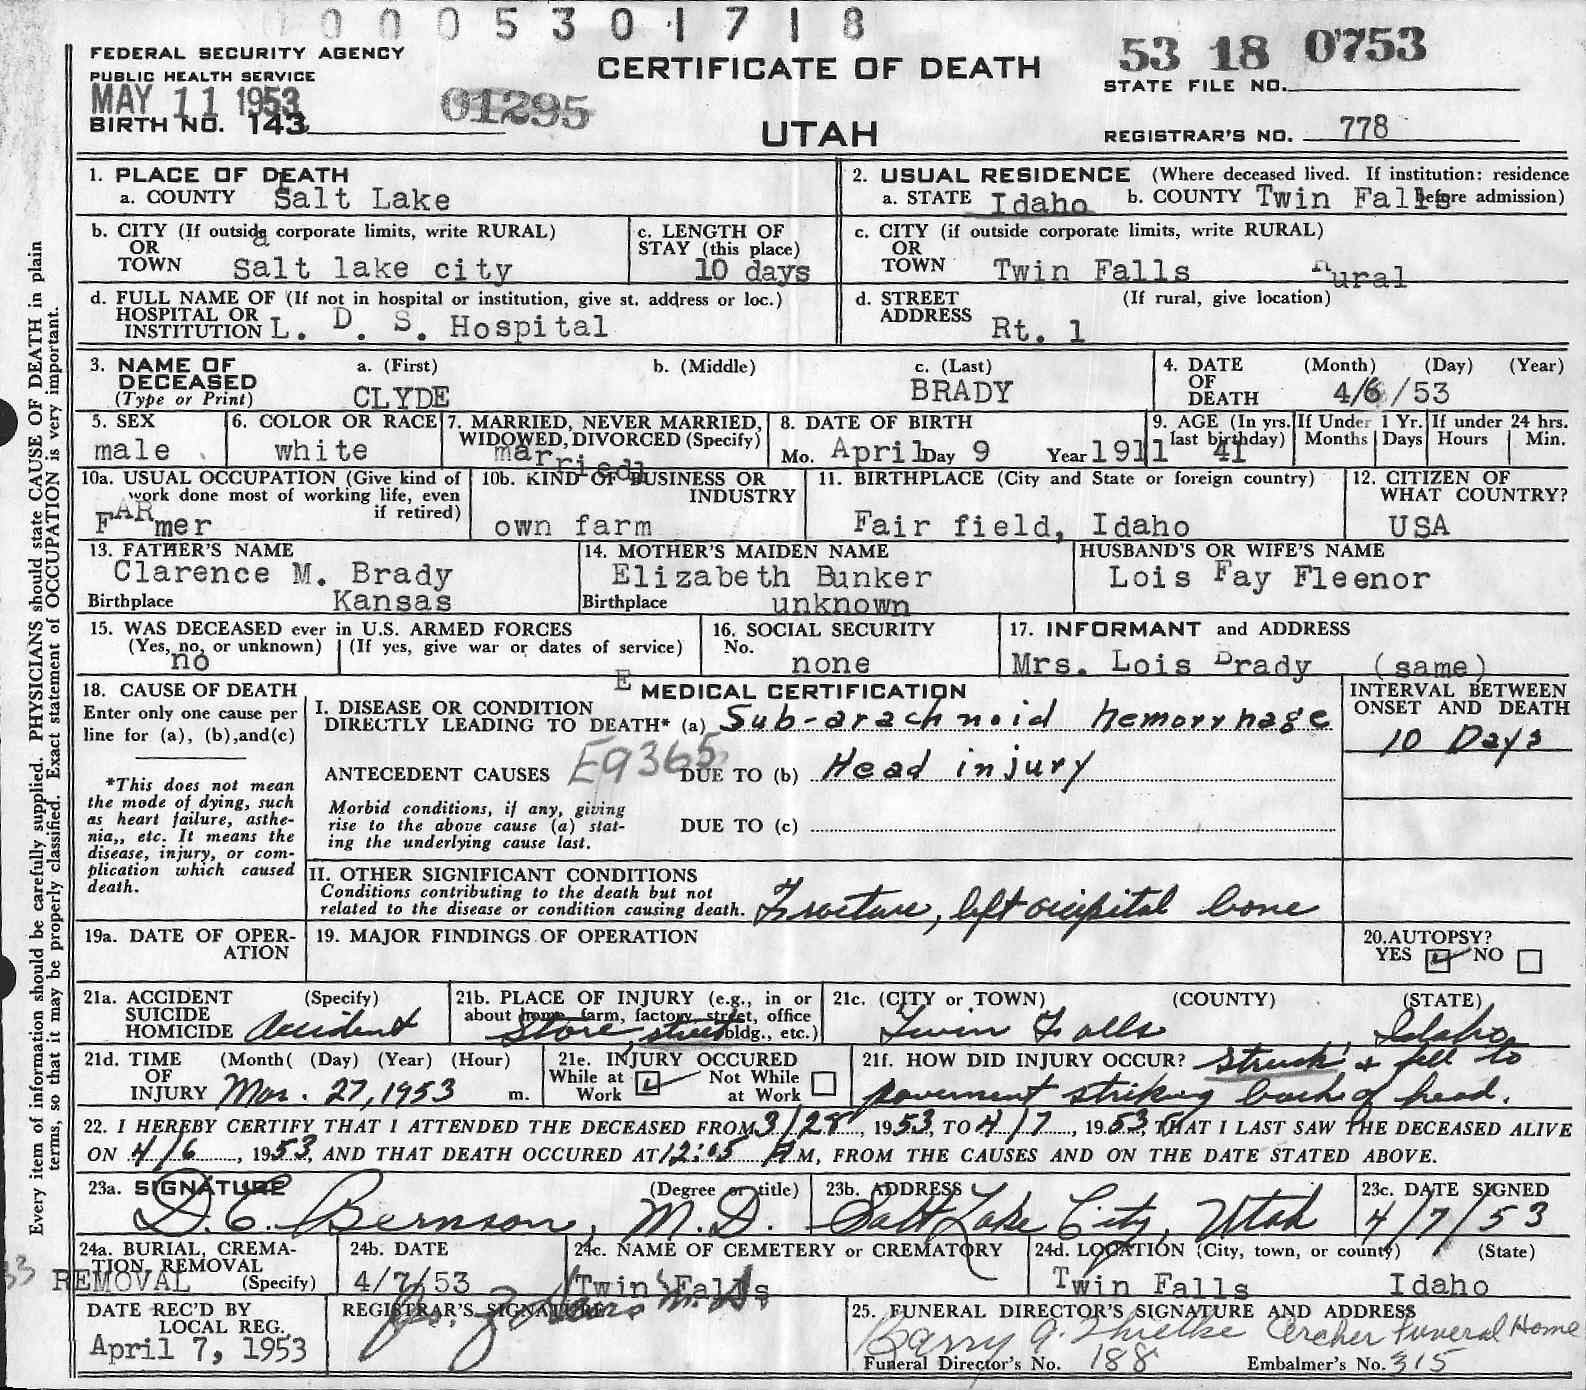 0005301718
FEDERAL SECURITY AGENCY
PUBLIC HEALTH SERVICE
MAY 11 1953
BIRTH NO. 143
01295
CERTIFICATE OF DEATH
UTAH
53 18 0753
STATE FILE NO.
REGISTRAR'S NO. 778
1. PLACE OF DEATH
a. COUNTY Salt Lake
2. USUAL RESIDENCE (Where deceased lived. If institution: residence before admission)
a. STATE Idaho b. COUNTY Twin Falls
b. CITY (If outside corporate limits, write RURAL)
OR
TOWN Salt lake city
c. LENGTH OF
STAY (this place)
10 days
c. CITY (if outside corporate limits, write RURAL)
OR
TOWN Twin Falls Rural
d. FULL NAME OF (If not in hospital or institution, give st. address or loc.)
HOSPITAL OR
INSTITUTION L. D. S. Hospital
d. STREET (If rural, give location)
ADDRESS
Rt. 1
3. NAME OF
DECEASED
(Type or Print)
a. (First)
CLYDE
b. (Middle)
c. (Last)
BRADY
4. DATE (Month) (Day) (Year)
OF
DEATH 4/6/53
5. SEX
male
6. COLOR OR RACE
white
7. MARRIED, NEVER MARRIED,
WIDOWED, DIVORCED (Specify)
married
8. DATE OF BIRTH
Mo. April Day 9 Year 1911
9. AGE (In yrs. last birthday) 41
If Under 1 Yr. Months Days
If under 24 hrs. Hours Min.
10a. USUAL OCCUPATION (Give kind of
work done most of working life, even
if retired)
FARmer
10b. KIND OF BUSINESS OR
INDUSTRY
own farm
11. BIRTHPLACE (City and State or foreign country)
Fair field, Idaho
12. CITIZEN OF
WHAT COUNTRY?
USA
13. FATHER'S NAME
Clarence M. Brady
Birthplace Kansas
14. MOTHER'S MAIDEN NAME
Elizabeth Bunker
Birthplace unknown
HUSBAND'S OR WIFE'S NAME
Lois Fay Fleenor
15. WAS DECEASED ever in U.S. ARMED FORCES
(Yes, no, or unknown) (If yes, give war or dates of service)
no
16. SOCIAL SECURITY
No.
none
17. INFORMANT and ADDRESS
Mrs. Lois Brady (same)
18. CAUSE OF DEATH
Enter only one cause per
line for (a), (b), and (c)
*This does not mean
the mode of dying, such
as heart failure, asthe-
nia,, etc. It means the
disease, injury, or com-
plication which caused
death.
E
MEDICAL CERTIFICATION
I. DISEASE OR CONDITION
DIRECTLY LEADING TO DEATH* (a) Sub-arachnoid hemorrhage
ANTECEDENT CAUSES E9365 DUE TO (b) Head injury
Morbid conditions, if any, giving
rise to the above cause (a) stat-
ing the underlying cause last.
DUE TO (c)
INTERVAL BETWEEN
ONSET AND DEATH
10 Days
II. OTHER SIGNIFICANT CONDITIONS
Conditions contributing to the death but not
related to the disease or condition causing death. Fracture, left occipital bone
19a. DATE OF OPER-
ATION
19. MAJOR FINDINGS OF OPERATION
20. AUTOPSY?
YES NO
21a. ACCIDENT (Specify)
SUICIDE
HOMICIDE Accident
21b. PLACE OF INJURY (e.g., in or
about home, farm, factory, street, office
bldg., etc.)
Store street
21c. (CITY or TOWN) (COUNTY) (STATE)
Twin Falls Idaho
21d. TIME (Month( (Day) (Year) (Hour)
OF
INJURY Mar. 27, 1953 m.
21e. INJURY OCCURED
While at Work Not While at Work
21f. HOW DID INJURY OCCUR? Struck & fell to
pavement striking back of head.
22. I HEREBY CERTIFY THAT I ATTENDED THE DECEASED FROM 3/28, 1953, TO 4/7, 1953, THAT I LAST SAW THE DECEASED ALIVE
ON 4/6, 1953, AND THAT DEATH OCCURED AT 12:05 AM, FROM THE CAUSES AND ON THE DATE STATED ABOVE.
23a. SIGNATURE (Degree or title)
D. C. Bernson, M.D.
23b. ADDRESS
Salt Lake City, Utah
23c. DATE SIGNED
4/7/53
24a. BURIAL, CREMA-
TION, REMOVAL
REMOVAL (Specify)
24b. DATE
4/7/53
24c. NAME OF CEMETERY or CREMATORY
Twin Falls
24d. LOCATION (City, town, or county) (State)
Twin Falls Idaho
DATE REC'D BY
LOCAL REG.
April 7, 1953
REGISTRAR'S SIGNATURE
25. FUNERAL DIRECTOR'S SIGNATURE AND ADDRESS
Barry A. Thielke Archer Funeral Home
Funeral Director's No. 188 Embalmer's No. 315
Every item of information should be carefully supplied. PHYSICIANS should state CAUSE OF DEATH in plain
terms, so that it may be properly classified. Exact statement of OCCUPATION is very important.